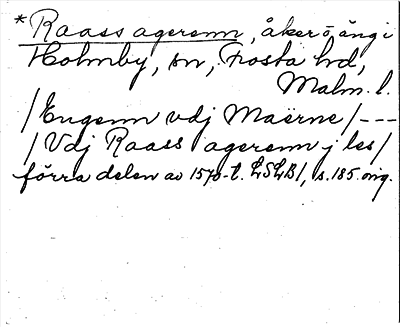 *Raass agerenn, åker o äng i
Holmby, sn, Frosta hd,
Malm. l.
/Engenn vdj Maërne/---
/Vdj Raass agerenn j les/
förra delen av 1570-t. LSLB1, s.185. orig.